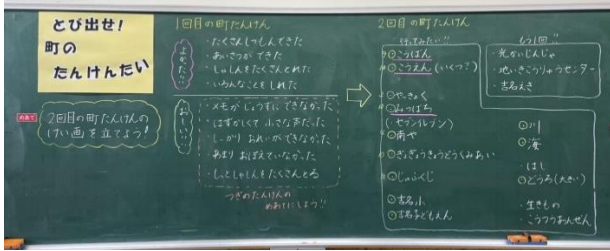 とび出せ!
町の
たんけんたい
めあて
2回目の町たんけんの
けい画を立てよう!
1回目の町たんけん
よかった
・たくさんしつもんできた
・あいさつができた
・しゃしんをたくさんとれた
・いろんなことをしれた
・メモがじょうずにできなかった
・はずかしくて小さな声だった
・しっかりおれいができなかった
・あまりおぼえていなかった
・もっとしゃしんをたくさんとる
つぎのたんけんの
めあてにしよう!!
2回目の町たんけん
行ってみたい!!
こうばん
こうえん(いくつ?)
やっきょく
みつばち
(セブンイレブン)
南や
ぎょぎょうきょうどうくみあい
じゅふくじ
吉名小
吉名子どもえん
もう1回!!
・光かいじんじゃ
・地いきこうりゅうセンター
・吉名えき
川
海
・はし
どうろ(大きい)
・生きもの
・こうつうあんぜん